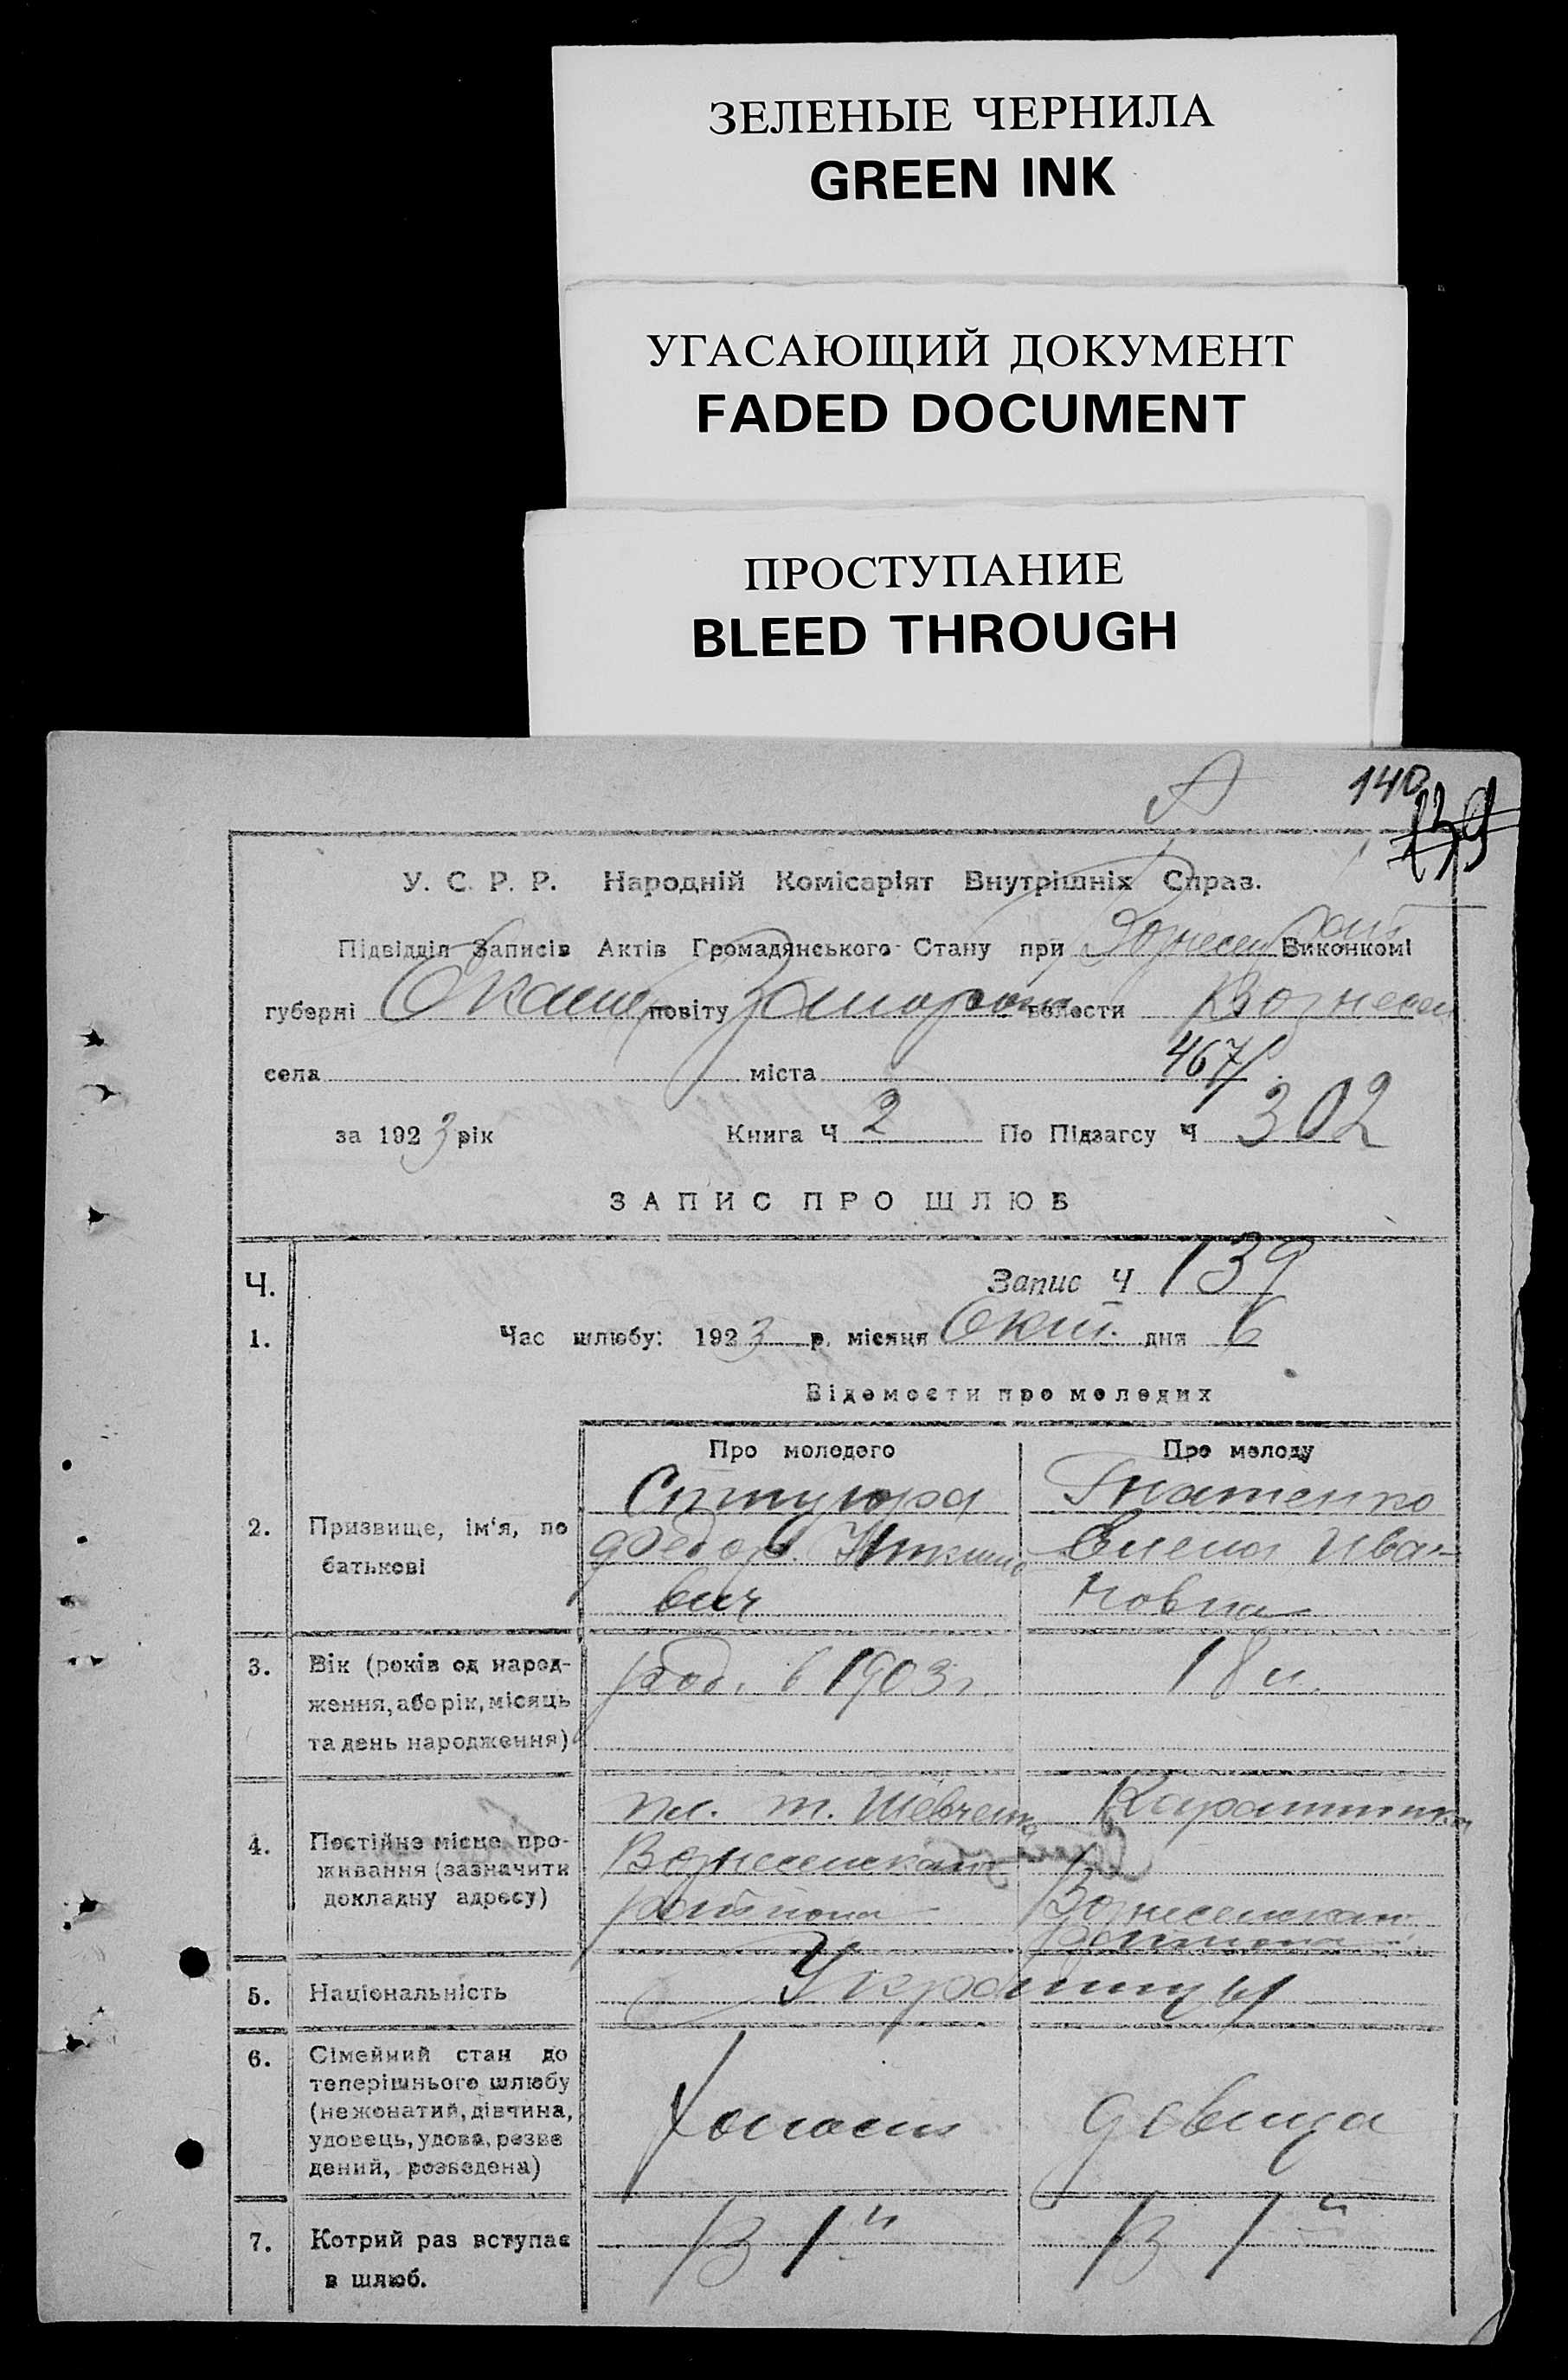 ЗЕЛЕНЫЕ ЧЕРНИЛА
GREEN INK
УГАСАЮЩИЙ ДОКУМЕНТ
FADED DOCUMENT
ПРОСТУПАНИЕ
BLEED THROUGH
140
139
У. С. Р. Р. Народній Комісаріят Внутрішніх Справ.
Підвідділ Записів Актів Громадянського Стану при Вознесен Виконкомі
губерні Екате повіту волости Вознесен
села міста 467/
за 1923 рік Книга Ч 2 По Підзагсу Ч 302
ЗАПИС ПРО ШЛЮБ
Ч. Запис Ч 139
1. Час шлюбу: 1923 р. місяця Окт. дня 6
Відомости про молодих
Про молодого Про молоду
2. Призвище, ім'я, по батькові
Гнатенко
Федор Елена Ива-
вич новна
3. Вік (років од народ-
ження, або рік, місяць
та день народження)
род. в 1903 г. 18 л.
4. Постійне місце про-
живання (зазначити
докладну адресу)
им. т. Шевченко
Вознесенского
района Вознесенского
района
5. Національність Украинцы
6. Сімейний стан до
теперішнього шлюбу
(нежонатий, дівчина,
удовець, удова, розве
дений, розведена)
Холост девица
7. Котрий раз вступає
в шлюб.
В 1й В 1й